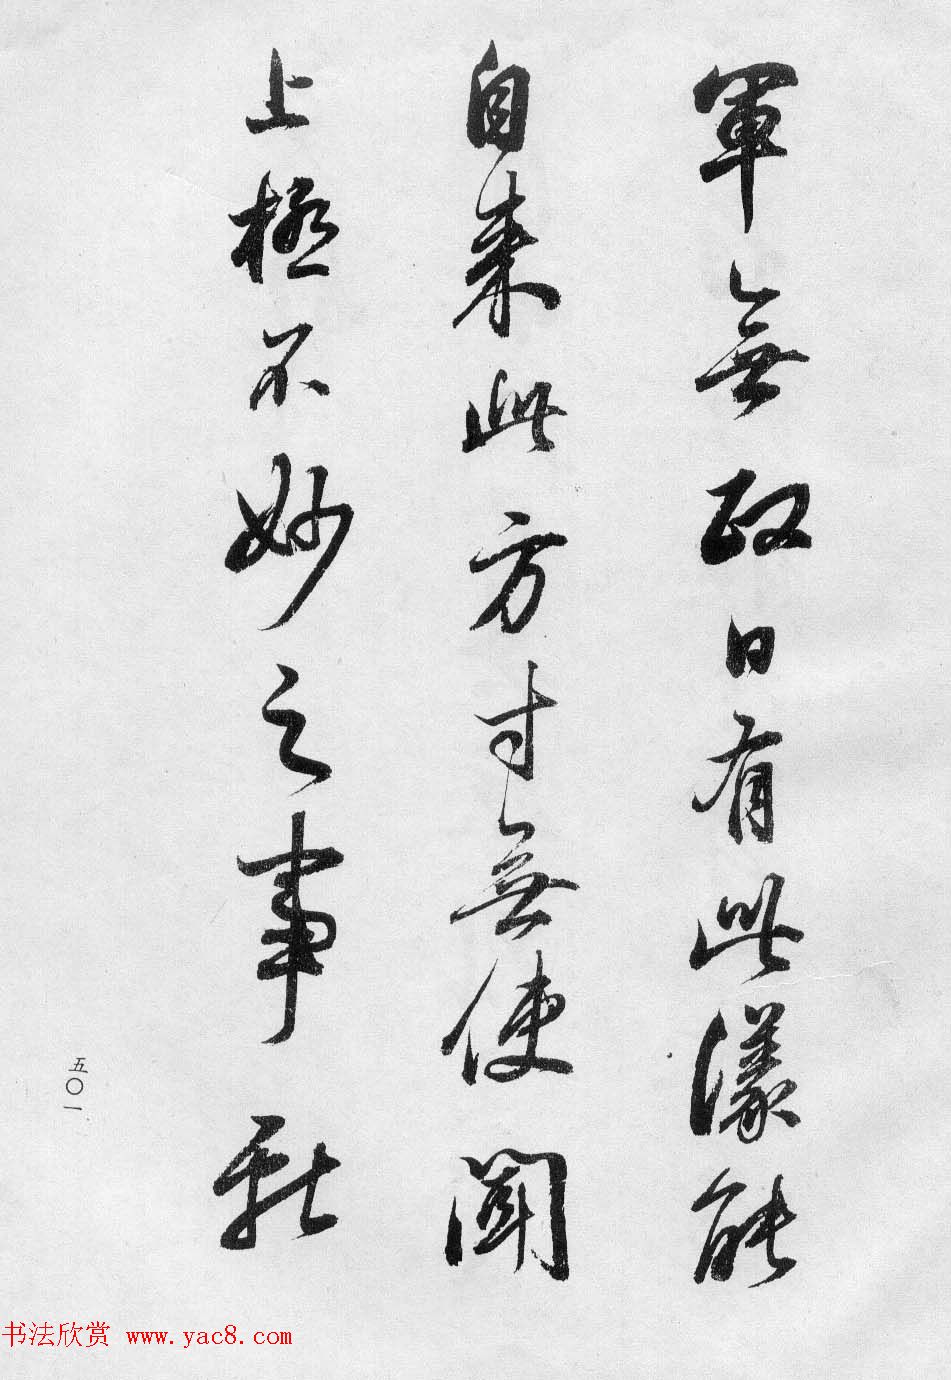 軍無政日有此漾能
自来此方寸無使闻
上極不妙之事耶
五〇一
书法欣赏 www.yac8.com